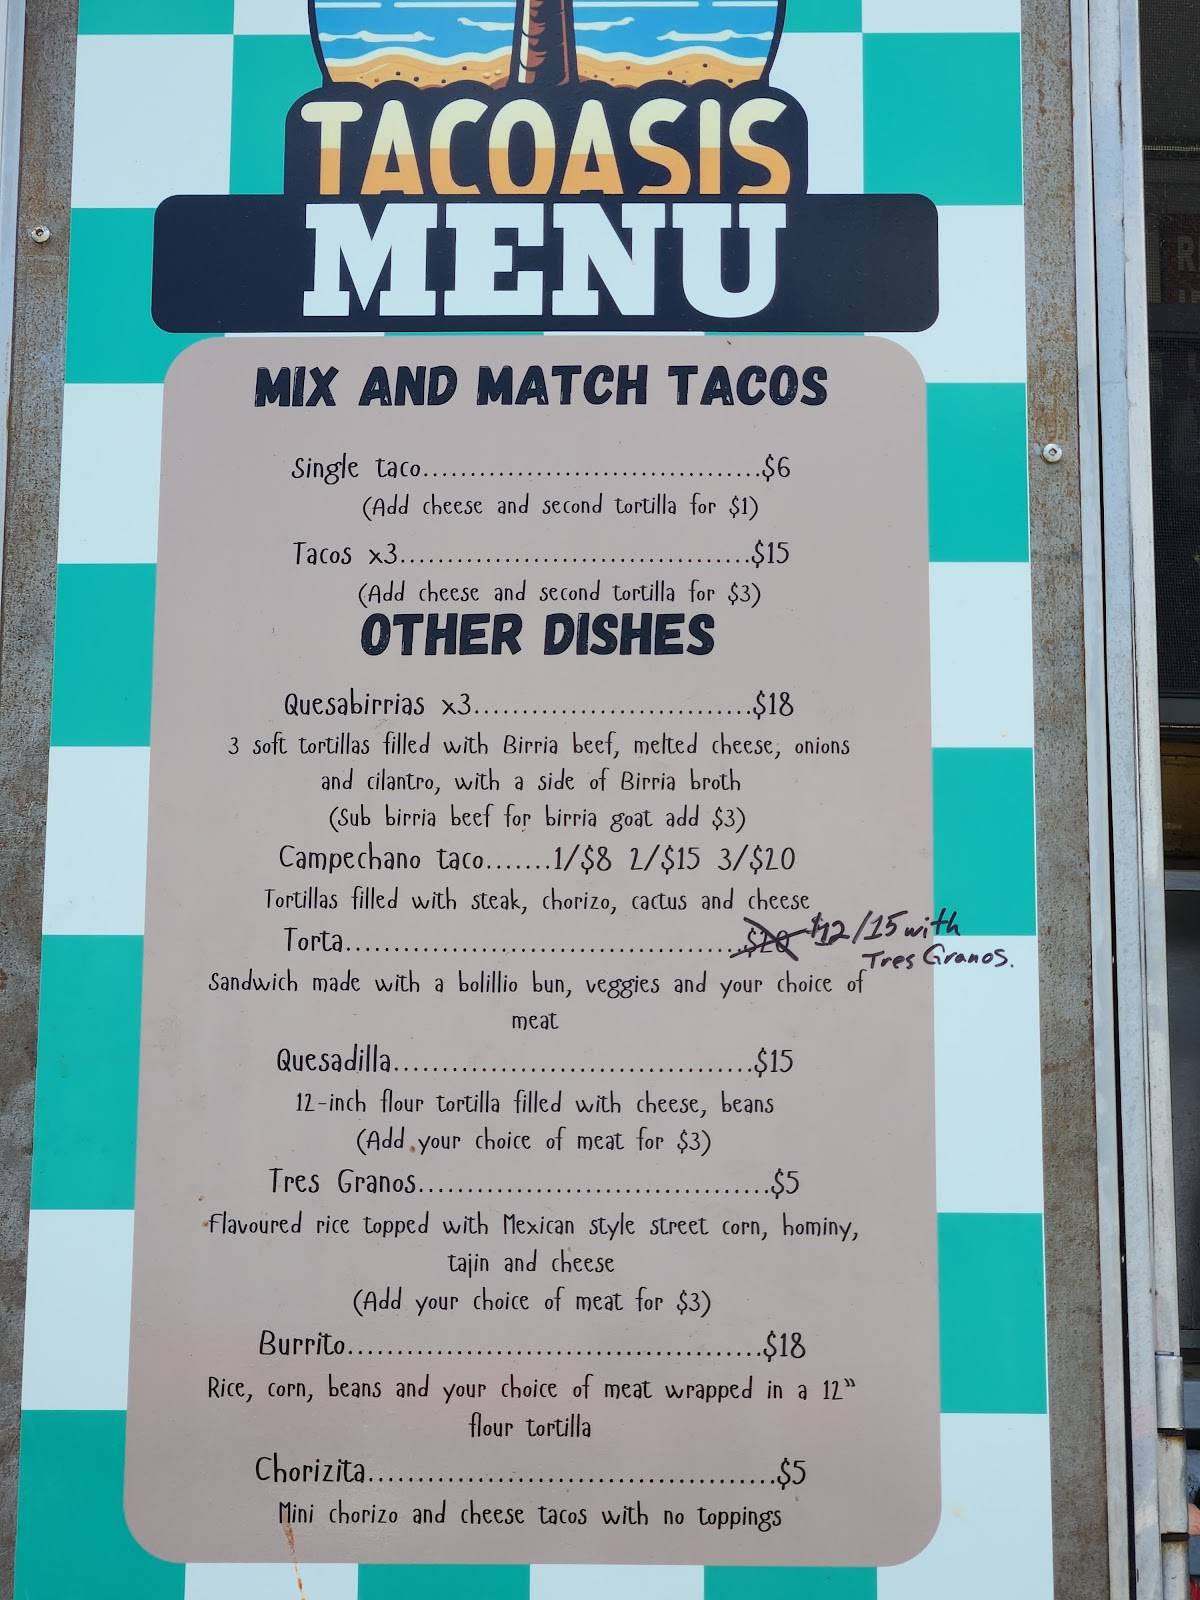 TACOASIS
MENU
MIX AND MATCH TACOS
Single taco...................................$6
(Add cheese and second tortilla for $1)
Tacos x3....................................$15
(Add cheese and second tortilla for $3)
OTHER DISHES
Quesabirrias x3.............................$18
3 soft tortillas filled with Birria beef, melted cheese, onions
and cilantro, with a side of Birria broth
(Sub birria beef for birria goat add $3)
Campechano taco.......1/$8 2/$15 3/$20
Tortillas filled with steak, chorizo, cactus and cheese
Torta.........................................$20 $12/15 with
Tres Granos.
Sandwich made with a bolillio bun, veggies and your choice of
meat
Quesadilla.....................................$15
12-inch flour tortilla filled with cheese, beans
(Add your choice of meat for $3)
Tres Granos....................................$5
Flavoured rice topped with Mexican style street corn, hominy,
tajin and cheese
(Add your choice of meat for $3)
Burrito..........................................$18
Rice, corn, beans and your choice of meat wrapped in a 12"
flour tortilla
Chorizita.........................................$5
Mini chorizo and cheese tacos with no toppings